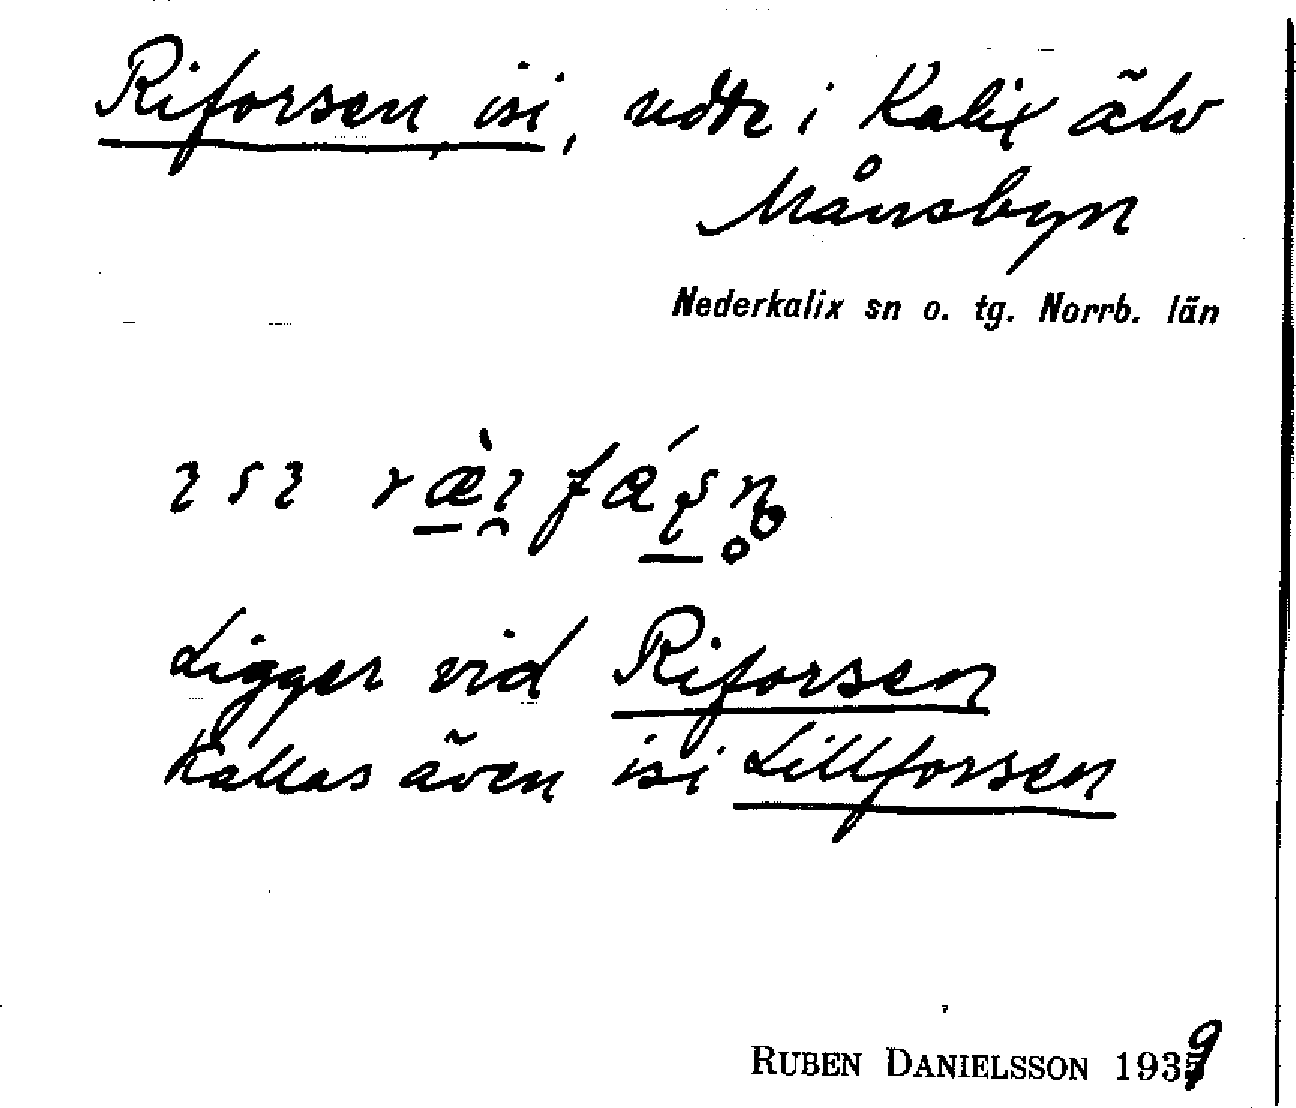 Riforsen, isi, notr i Kalix älv
Månsbyn
Nederkalix sn o. tg. Norrb. län
Ligger vid Riforsen
Kallas även isi Lillforsen
RUBEN DANIELSSON 1939